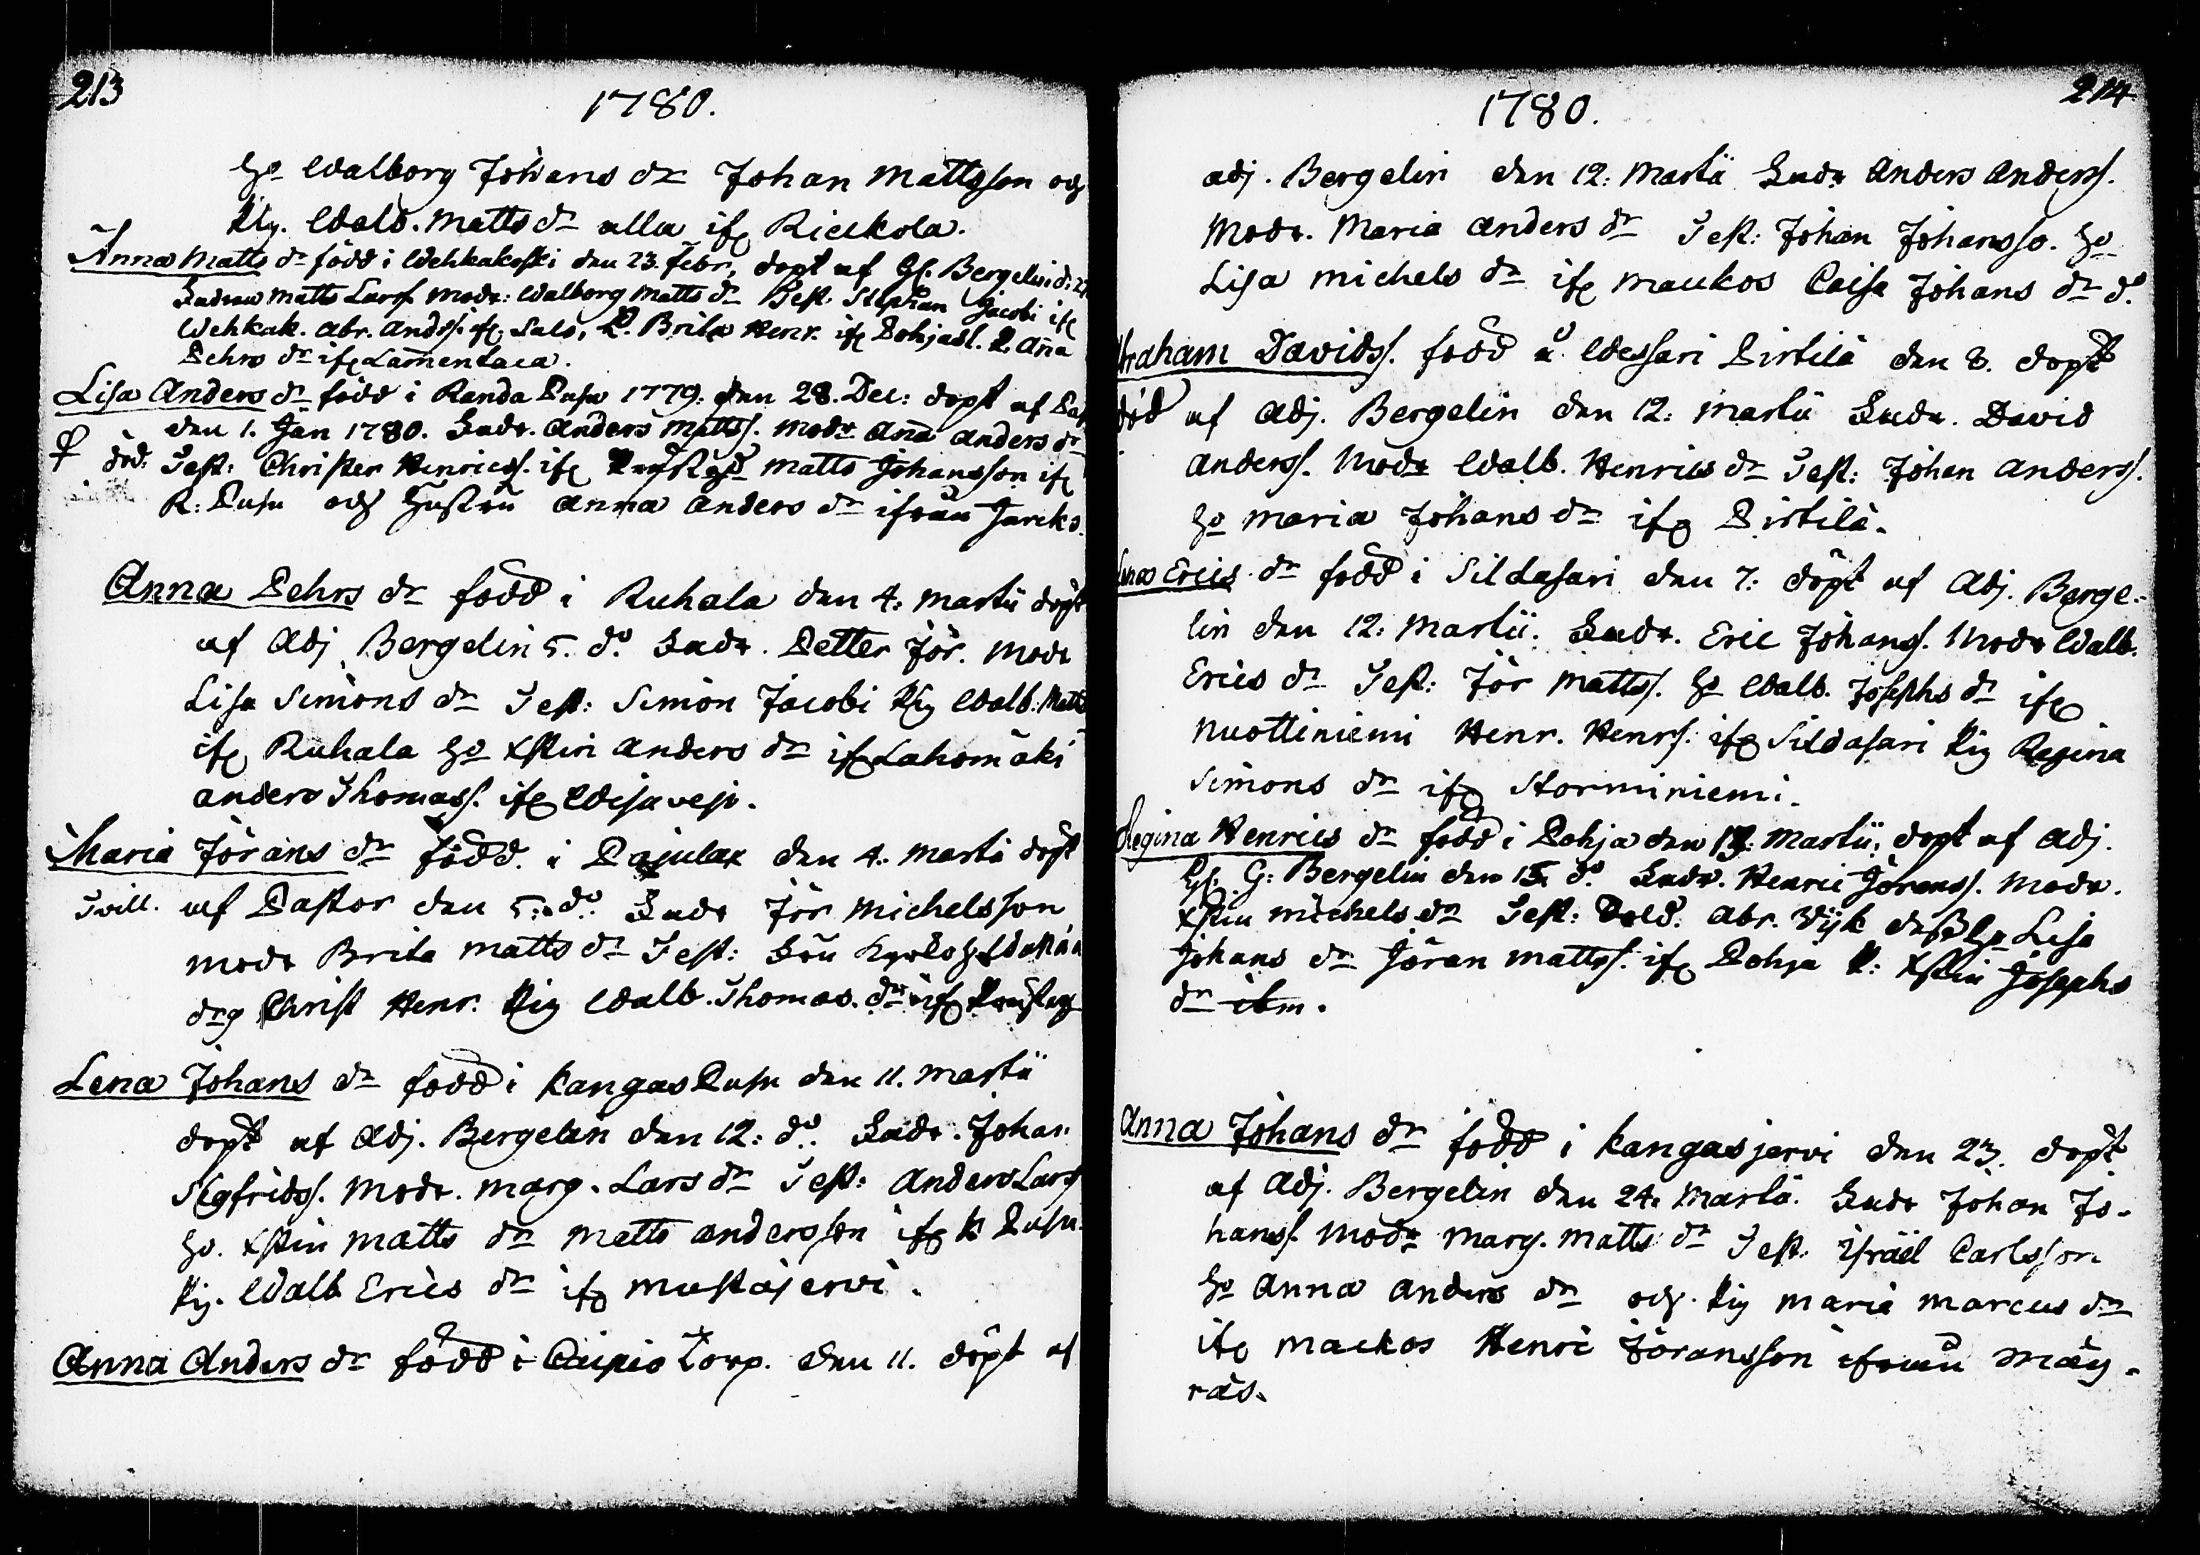 213
1780.
ho Walborg Johans dr Johan Mattsson och
Pig. Walb. Matts dr alla ifr Rieckola.
Anna Matts dr född i Wehkakoski den 23. Febr, döpt af Gl. Bergelin d: 27
Fadren Matts Larss. Modr: Walborg Matts dr Test. Stephan Jacobi ifr
Wehkak. Abr. Anderss. ifr Salo, P. Brita Henr. ifr Pohjasl. P. Aña
Pehrs dr ifr Lam̃entaca.
Lisa Anders dr född i Randa Pusu 1779. den 28. Dec: döpt af Past
den 1. Jan 1780. Fadr. Anders Mattss. Modr Aña Anders dr
död: Test: Christer Henricss. ifr Matts Johansson ifr
R: Pusu och Hustru Anna Anders dr ifrån Jarcko.
Anna Pehrs dr född i Ruhala den 4. Martii döpt
af Adj Bergelin 5. do Fadr. Petter Jör. Modr
Lisa Simons dr Test: Simon Jacobi Pig Walb. Matts
ifr Ruhala ho Xstin Anders dr ifr Lahomäki
Anders Thomass. ifr Wesavesi.
Maria Jörans dr född i Pajulax den 4. Martii döpt
Tvill. af Pastor den 5. do. Fadr Jör Michelsson
Modr Brita Matts dr Test:
drg Christ Henr. Pig Walb. Thomas. dr ifr
Lena Johans dr född i Kangas Pusu den 11. Martii
döpt af Adj. Bergelin den 12: do. Fadr. Johan
Sigfridss. Modr. Marg. Lars dr Test: Anders Larss
ho. Xstin Matts dr Matts Andersson ifr K Pusu.
Pig. Walb Erics dr ifr Mustajervi.
Anna Anders dr född i Caipio Torp. den 11. döpt af
214
1780.
adj. Bergelin den 12: Martii Fadr Anders Anderss.
Modr. Maria Anders dr Test: Johan Johansso. ho
Lisa Michels dr ifr Maukos Caisa Johans dr do.
Abraham Davidss. född å Wessari Pirtilä den 8. döpt
död af Adj. Bergelin den 12: Martii Fadr. David
Anderss. Modr Walb. Henrics dr Test: Johan Anderss.
ho Maria Johans dr ifr Pirtilä.
Erics dr född i Sildasari den 7: döpt af Adj. Berge-
lin den 12: Martii. Fadr. Eric Johanss. Modr Walb.
Erics dr Test: Jör Mattss. ho Walb. Josephs dr ifr
Nuottiniemi Henr. Henrs. ifr Sildasari Pig Regina
Simons dr ifr Storminiemi.
Regina Henrics dr född i Pohja den 13. Martii: döpt af Adj.
Gl. G: Bergelin den 15. do Fadr. Henric Jöranss. Modr.
Xstin Michels dr Test: Abr. Wijk Lisa
Johans dr Jöran Mattss. ifr Pohja P: Xstin Josephs
dr ibm.
Anna Johans dr född i Kangasjervi den 23. döpt
af Adj. Bergelin den 24. Martii. Fadr Johan Jo-
hanss. Modr Marg. Matts dr Test. Israël Carlsson
ho Anna Anders dr och Pig Maria Marcus dr
ifr Mackos Henri Joransson ifrån Mäy-
räs.